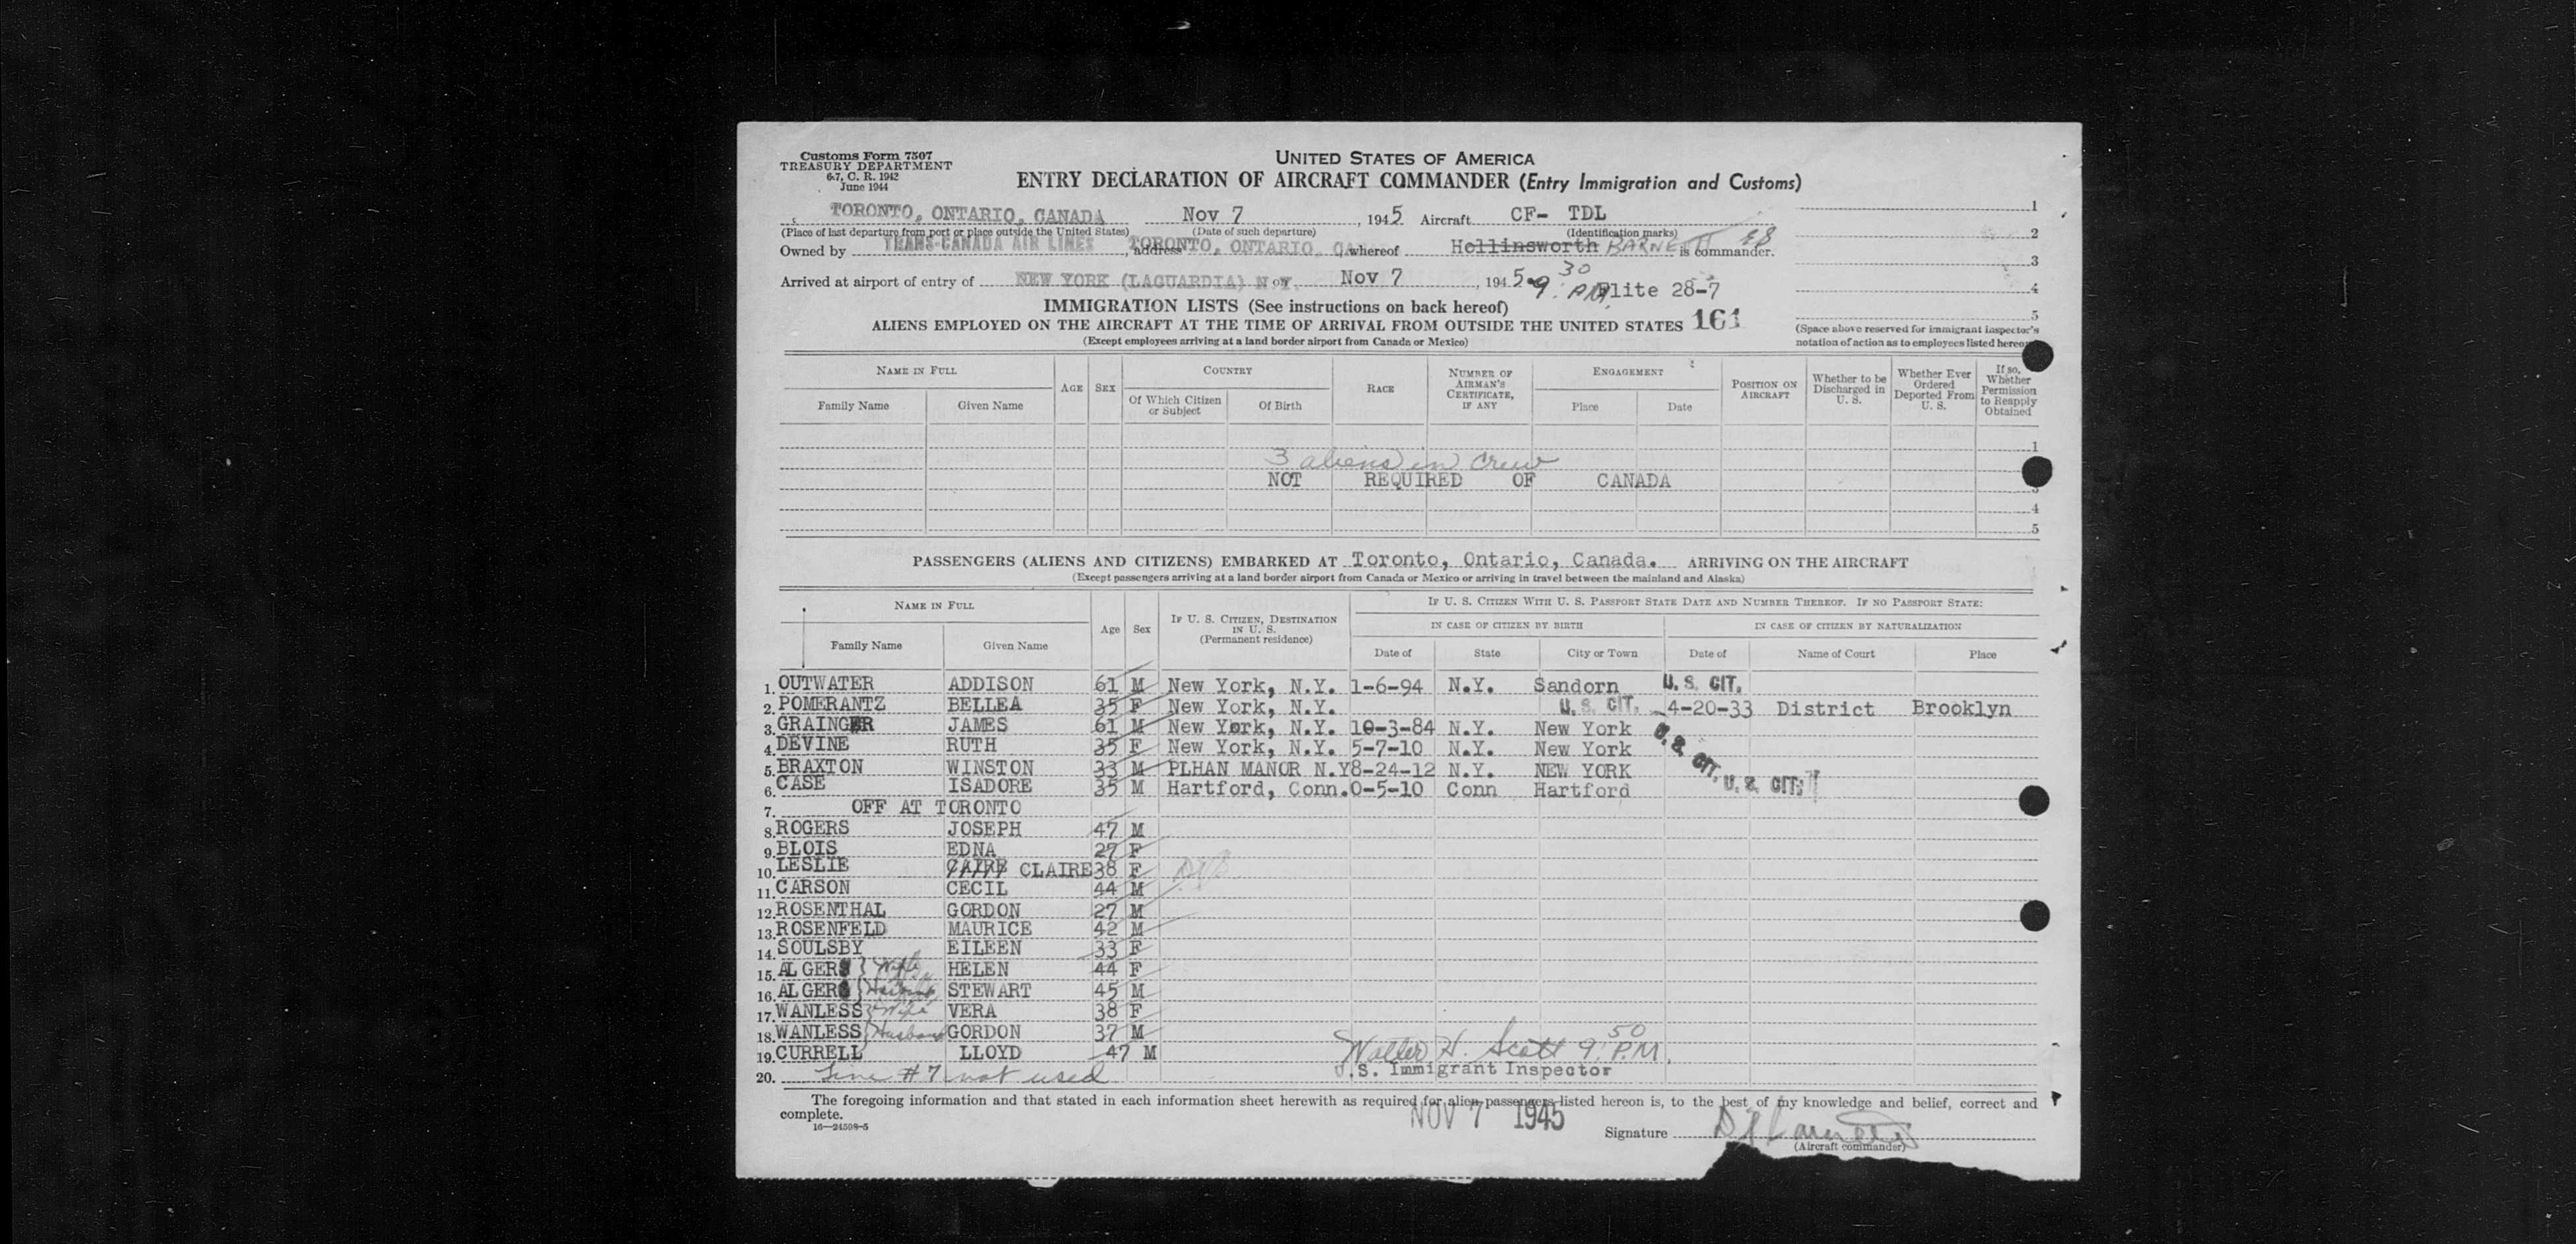 Customs Form 7507
TREASURY DEPARTMENT
6.7, C. R. 1942
June 1944
UNITED STATES OF AMERICA
ENTRY DECLARATION OF AIRCRAFT COMMANDER (Entry Immigration and Customs)
TORONTO, ONTARIO, CANADA Nov 7, 1945 Aircraft CF- TDL
(Place of last departure from port or place outside the United States) (Date of such departure) (Identification marks)
Owned by TRANS-CANADA AIR LINES, address TORONTO, ONTARIO, CA whereof Hollinsworth BARNETT is commander.
Arrived at airport of entry of NEW YORK (LAGUARDIA) N.Y. on Nov 7, 1945 9:30 PM Flite 28-7
1
2
3
4
5
IMMIGRATION LISTS (See instructions on back hereof)
ALIENS EMPLOYED ON THE AIRCRAFT AT THE TIME OF ARRIVAL FROM OUTSIDE THE UNITED STATES 161
(Except employees arriving at a land border airport from Canada or Mexico)
(Space above reserved for immigrant inspector's
notation of action as to employees listed hereon
NAME IN FULL
Family Name Given Name
AGE SEX
COUNTRY
Of Which Citizen or Subject Of Birth
RACE
NUMBER OF AIRMAN'S CERTIFICATE, IF ANY
ENGAGEMENT
Place Date
POSITION ON AIRCRAFT
Whether to be Discharged in U. S.
Whether Ever Ordered Deported From U. S.
If so, Whether Permission to Reapply Obtained
1
3 aliens in crew
NOT REQUIRED OF CANADA
3
4
5
PASSENGERS (ALIENS AND CITIZENS) EMBARKED AT Toronto, Ontario, Canada. ARRIVING ON THE AIRCRAFT
(Except passengers arriving at a land border airport from Canada or Mexico or arriving in travel between the mainland and Alaska)
NAME IN FULL
Family Name Given Name
Age Sex
IF U. S. CITIZEN, DESTINATION IN U. S. (Permanent residence)
IF U. S. CITIZEN WITH U. S. PASSPORT STATE DATE AND NUMBER THEREOF. IF NO PASSPORT STATE:
IN CASE OF CITIZEN BY BIRTH IN CASE OF CITIZEN BY NATURALIZATION
Date of State City or Town Date of Name of Court Place
1. OUTWATER ADDISON 61 M New York, N.Y. 1-6-94 N.Y. Sandorn U. S. CIT.
2. POMERANTZ BELLEA 35 F New York, N.Y. U. S. CIT. 4-20-33 District Brooklyn
3. GRAINGER JAMES 61 M New York, N.Y. 10-3-84 N.Y. New York
4. DEVINE RUTH 35 F New York, N.Y. 5-7-10 N.Y. New York U. S. CIT.
5. BRAXTON WINSTON 33 M PLHAN MANOR N.Y 8-24-12 N.Y. NEW YORK
6. CASE ISADORE 35 M Hartford, Conn. 0-5-10 Conn Hartford U. S. CIT.
7. OFF AT TORONTO
8. ROGERS JOSEPH 47 M
9. BLOIS EDNA 27 F
10. LESLIE CLAIRE 38 F
11. CARSON CECIL 44 M
12. ROSENTHAL GORDON 27 M
13. ROSENFELD MAURICE 42 M
14. SOULSBY EILEEN 33 F
15. ALGER } Wife HELEN 44 F
16. ALGER } Husband STEWART 45 M
17. WANLESS } Wife VERA 38 F
18. WANLESS } Husband GORDON 37 M
19. CURRELL LLOYD 47 M Walter H. Scott 9:50 P.M.
20. Line #7 not used U.S. Immigrant Inspector
The foregoing information and that stated in each information sheet herewith as required for alien passengers listed hereon is, to the best of my knowledge and belief, correct and
complete.
NOV 7 1945
16—24598-5
Signature
(Aircraft commander)